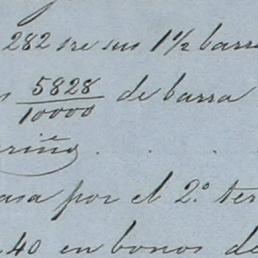 282 sre sus 1½ barra
5828/10000 de barra
riño
asa por el 2.º ter
40 en bonos de